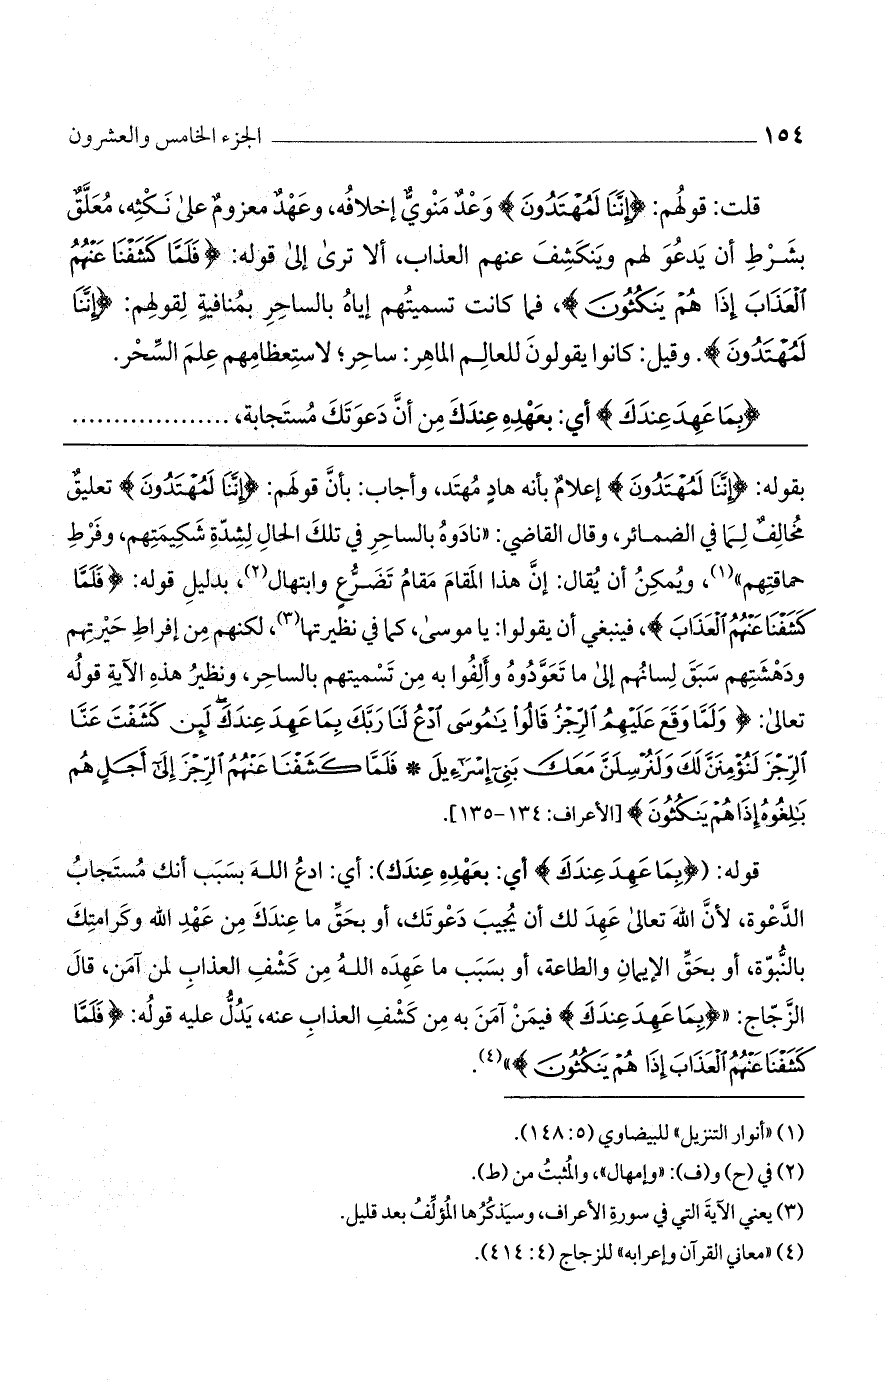 ١٥٤ ــــــــــــــــــــــــــــــــــــــــ الجزء الخامس والعشرون
قلت: قولُهم: ﴿إِنَّنَا لَمُهْتَدُونَ﴾ وَعْدٌ مَنْويٌّ إخلافُه، وعَهْدٌ معزومٌ علىٰ نَكْثِه، مُعَلَّقٌ
بشَرْطِ أن يَدعُوَ لهم ويَنكَشِفَ عنهم العذاب، ألا ترىٰ إلىٰ قوله: ﴿فَلَمَّا كَشَفْنَا عَنْهُمُ
ٱلْعَذَابَ إِذَا هُمْ يَنكُثُونَ﴾، فما كانت تسميتُهم إياهُ بالساحِرِ بمُنافيةٍ لِقولهِم: ﴿إِنَّنَا
لَمُهْتَدُونَ﴾. وقيل: كانوا يقولونَ للعالِمِ الماهِر: ساحِر؛ لاستِعظامِهم عِلمَ السِّحْر.
﴿بِمَا عَهِدَ عِندَكَ﴾ أي: بعَهْدِهِ عِندَكَ مِن أنَّ دَعوَتَكَ مُستَجابة، ...................
بقوله: ﴿إِنَّنَا لَمُهْتَدُونَ﴾ إعلامٌ بأنه هادٍ مُهتَد، وأجاب: بأنَّ قولَهم: ﴿إِنَّنَا لَمُهْتَدُونَ﴾ تعليقٌ
مُخالِفٌ لِمَا في الضمائر، وقال القاضي: «نادَوهُ بالساحِرِ في تلكَ الحالِ لِشِدّةِ شَكيمَتِهم، وفَرْطِ
حماقتِهم»(١)، ويُمكِنُ أن يُقال: إنَّ هذا المَقامَ مَقامُ تَضَرُّعٍ وابتهال(٢)، بدليلِ قوله: ﴿فَلَمَّا
كَشَفْنَا عَنْهُمُ ٱلْعَذَابَ﴾، فينبغي أن يقولوا: يا موسىٰ، كما في نظيرتها(٣)، لكنهم مِن إفراطِ حَيْرتِهم
ودَهْشَتِهم سَبَقَ لِسانُهم إلىٰ ما تَعَوَّدُوهُ وأَلِفُوا به مِن تَسْميتِهم بالساحِر، ونظيرُ هذهِ الآيةِ قولُه
تعالىٰ: ﴿وَلَمَّا وَقَعَ عَلَيْهِمُ ٱلرِّجْزُ قَالُوا۟ يَٰمُوسَى ٱدْعُ لَنَا رَبَّكَ بِمَا عَهِدَ عِندَكَ ۖ لَئِن كَشَفْتَ عَنَّا
ٱلرِّجْزَ لَنُؤْمِنَنَّ لَكَ وَلَنُرْسِلَنَّ مَعَكَ بَنِىٓ إِسْرَٰٓءِيلَ * فَلَمَّا كَشَفْنَا عَنْهُمُ ٱلرِّجْزَ إِلَىٰٓ أَجَلٍ هُم
بَٰلِغُوهُ إِذَا هُمْ يَنكُثُونَ﴾ [الأعراف: ١٣٤-١٣٥].
قوله: (﴿بِمَا عَهِدَ عِندَكَ﴾ أي: بعَهْدِهِ عِندَك): أي: ادعُ اللهَ بسَبَب أنك مُستَجابُ
الدَّعْوة، لأنَّ اللهَ تعالىٰ عَهِدَ لك أن يُجيبَ دَعْوتَك، أو بحَقِّ ما عِندَكَ مِن عَهْدِ الله وكَرامتِكَ
بالنُّبوّة، أو بحَقِّ الإيمانِ والطاعة، أو بسَبَب ما عَهِدَه اللهُ مِن كَشْفِ العذابِ لمن آمَن، قالَ
الزَّجّاج: «﴿بِمَا عَهِدَ عِندَكَ﴾ فيمَنْ آمَنَ به مِن كَشْفِ العذابِ عنه، يَدُلُّ عليه قولُه: ﴿فَلَمَّا
كَشَفْنَا عَنْهُمُ ٱلْعَذَابَ إِذَا هُمْ يَنكُثُونَ﴾»(٤).
(١) «أنوار التنزيل» للبيضاوي (٥: ١٤٨).
(٢) في (ح) و(ف): «وإمهال»، والمُثبتُ من (ط).
(٣) يعني الآيةَ التي في سورةِ الأعراف، وسيَذكُرُها المُؤلِّفُ بعد قليل.
(٤) «معاني القرآن وإعرابه» للزجاج (٤: ٤١٤).